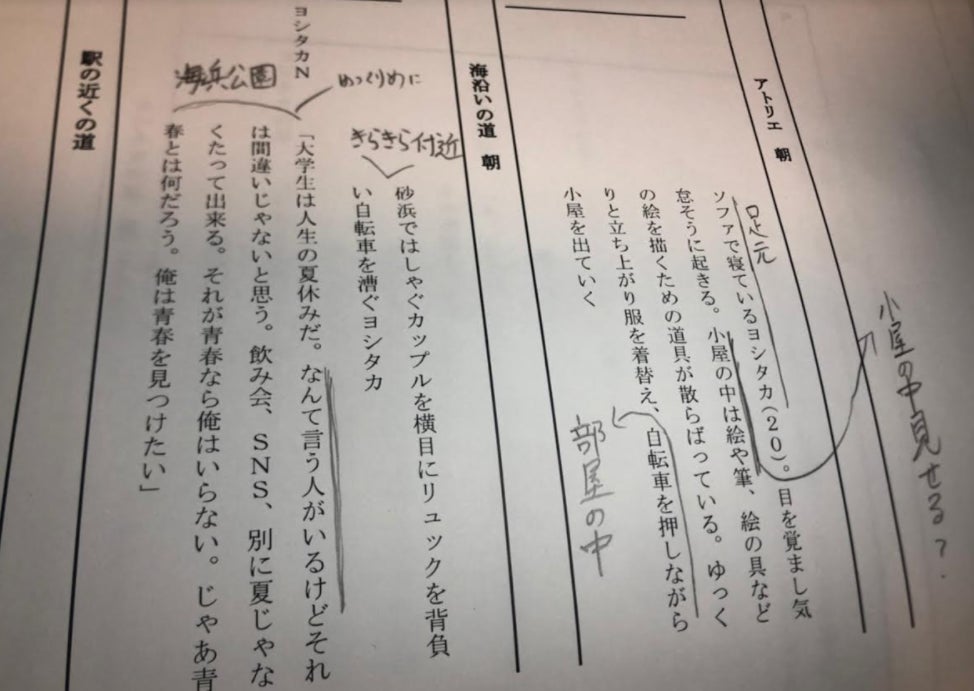 小屋の中見せる?
アトリエ 朝
足元
ソファで寝ているヨシタカ(20)。目を覚まし気
怠そうに起きる。小屋の中は絵や筆、絵の具など
の絵を描くための道具が散らばっている。ゆっく
りと立ち上がり服を着替え、自転車を押しながら
小屋を出ていく
部屋の中
海沿いの道 朝
きらきら付近
砂浜ではしゃぐカップルを横目にリュックを背負
い自転車を漕ぐヨシタカ
めっくりめに
ヨシタカN
海浜公園
「大学生は人生の夏休みだ。なんて言う人がいるけどそれ
は間違いじゃないと思う。飲み会、SNS、別に夏じゃな
くたって出来る。それが青春なら俺はいらない。じゃあ青
春とは何だろう。俺は青春を見つけたい」
駅の近くの道